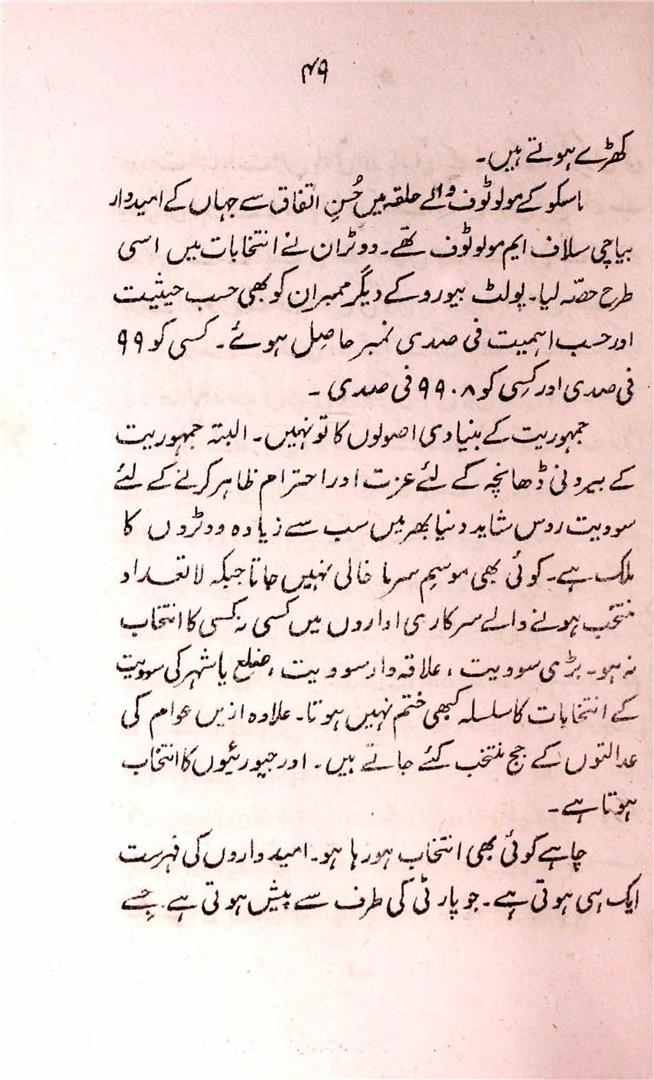 ۴۹
کھڑے ہوتے ہیں۔
ماسکو کے مولوٹوف والے حلقہ میں حُسنِ اتفاق سے جہاں کے امیدوار
بیاچی سلاف ایم مولوٹوف تھے۔ ووٹران نے انتخابات میں اسی
طرح حصّہ لیا۔ پولٹ بیورو کے دیگر ممبران کو بھی حسب حیثیت
اور حسب اہمیت فی صدی نمبر حاصل ہوئے۔ کسی کو ۹۹
فی صدی اور کسی کو ۹۹.۸ فی صدی ۔
جمہوریت کے بنیادی اصولوں کا تو نہیں۔ البتہ جمہوریت
کے بیرونی ڈھانچہ کے لئے عزت اور احترام ظاہر کرنے کے لئے
سوویت روس شاید دنیا بھر میں سب سے زیادہ ووٹروں کا
ملک ہے۔ کوئی بھی موسمِ سرما خالی نہیں جاتا جبکہ لاتعداد
منتخب ہونے والے سرکاری اداروں میں کسی نہ کسی کا انتخاب
نہ ہو۔ بڑی سوویت ، علاقہ وار سوویت ، ضلع یا شہر کی سوویت
کے انتخابات کا سلسلہ کبھی ختم نہیں ہوتا۔ علاوہ ازیں عوام کی
عدالتوں کے جج منتخب کئے جاتے ہیں۔ اور جیوریئیوں کا انتخاب
ہوتا ہے۔
چاہے کوئی بھی انتخاب ہو رہا ہو۔ امیدواروں کی فہرست
ایک ہی ہوتی ہے۔ جو پارٹی کی طرف سے پیش ہوتی ہے۔ جسے